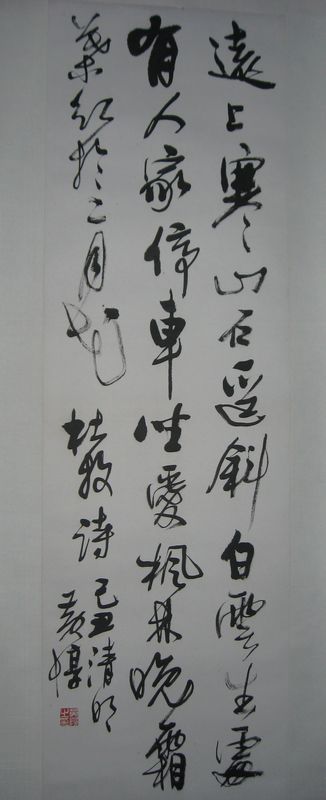 遠上寒山石逕斜白雲生處
有人家停車坐愛楓林晚霜
葉紅於二月花 杜牧詩
己丑清明
黄惇